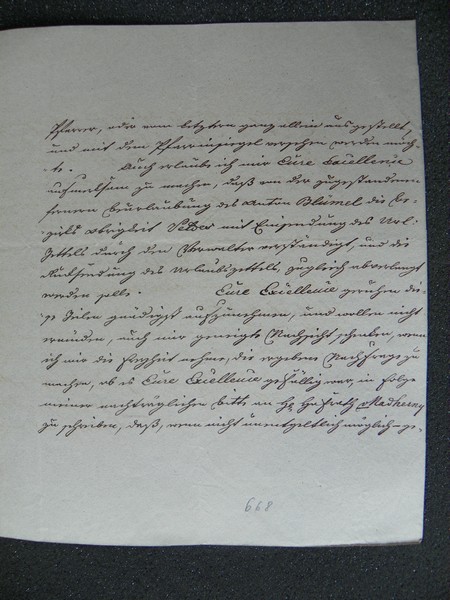 Pfarrer, oder vom letztern ganz allein ausgestellt,
und mit dem Pfarrinsiegel versehen werden möch-
te. Auch erlaube ich mir Eure Excellence
aufmerksam zu machen, daß von der zugestandenen
fernern Beurlaubung des Anton Blümel die Be-
zirks Obrigkeit mit Einsendung des Url.
Zettels durch den Verwalter verständigt, und die
Rücksendung des Urlaubszettels, zugleich abverlangt
werden solle. Eure Excellence geruhen die-
se Zeilen gnädigst aufzunehmen, und wollen nicht
, auch mir geneigte Nachsicht schenken, wenn
ich mir die Freyheit nehme, die ergebene Nachfrage zu
machen, ob es Eure Excellence gefällig war, in Folge
meiner nachträglichen Bitte an H. Hofrath Madherny
zu schreiben, daß, wenn nicht unentgeltlich möglich - ge-
668